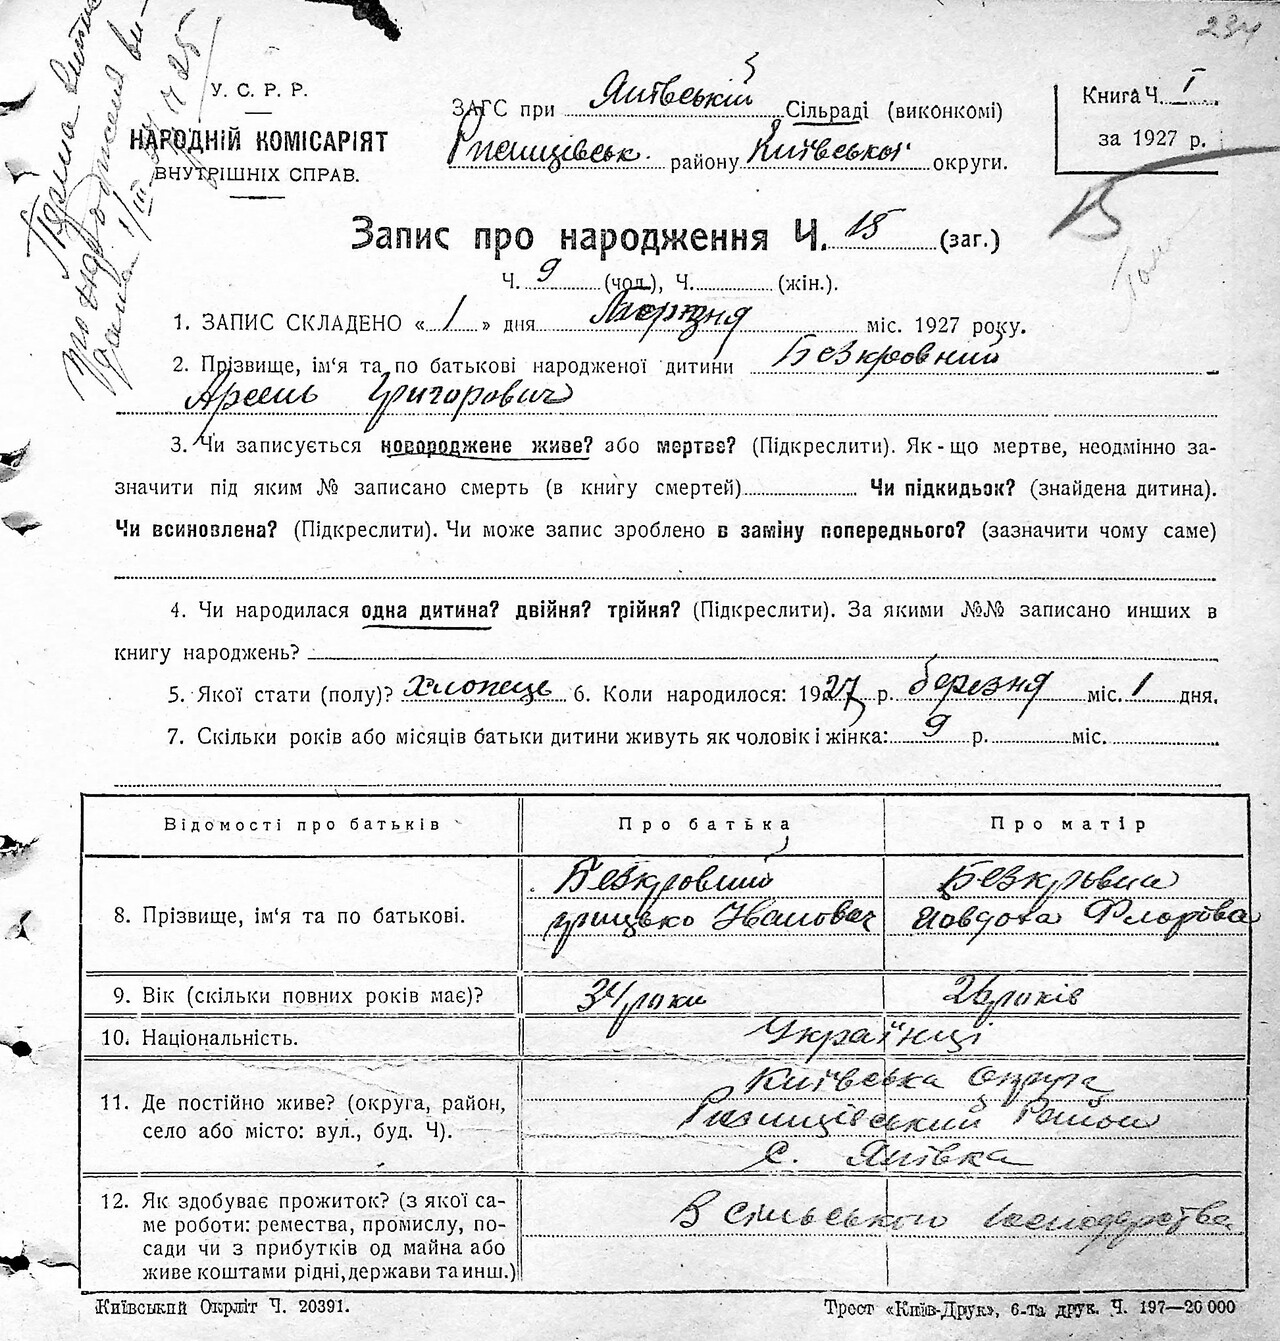 234
У. С. Р. Р.
НАРОДНІЙ КОМІСАРІЯТ
ВНУТРІШНІХ СПРАВ.
ЗАГС при Янівській Сільраді (виконкомі)
Ржищівськ. району Київської округи.
Книга Ч. I
за 1927 р.
15
Запис про народження Ч. 15 (заг.)
Ч. 9 (чол.), Ч. (жін.).
1. ЗАПИС СКЛАДЕНО « 1 » дня міс. 1927 року.
2. Прізвище, ім‘я та по батькові народженої дитини Безкровний
Арсень Григорович
3. Чи записується новороджене живе? або мертве? (Підкреслити). Як-що мертве, неодмінно за-
значити під яким № записано смерть (в книгу смертей) Чи підкидьок? (знайдена дитина).
Чи всиновлена? (Підкреслити). Чи може запис зроблено в заміну попереднього? (зазначити чому саме)
4. Чи народилася одна дитина? двійня? трійня? (Підкреслити). За якими №№ записано инших в
книгу народжень?
5. Якої стати (полу)? Хлопець 6. Коли народилося: 1927 р. березня міс. 1 дня.
7. Скільки років або місяців батьки дитини живуть як чоловік і жінка: 9 р. міс.
Відомості про батьків Про батька Про матір
8. Прізвище, ім‘я та по батькові. Безкровний Безкрьвна
Грицько Іванович Йовдоха Флорівна
9. Вік (скільки повних років має)? 34 роки 26 років
10. Національність. Українці
11. Де постійно живе? (округа, район,
село або місто: вул., буд. Ч).
Київська округа
Ржищівський Район
с. Янівка
12. Як здобуває прожиток? (з якої са-
ме роботи: ремества, промислу, по-
сади чи з прибутків од майна або
живе коштами рідні, держави та инш.)
В сільського господарства
Київський Окрліт Ч. 20391.
Трест «Київ-Друк», 6-та друк. Ч. 197—20000